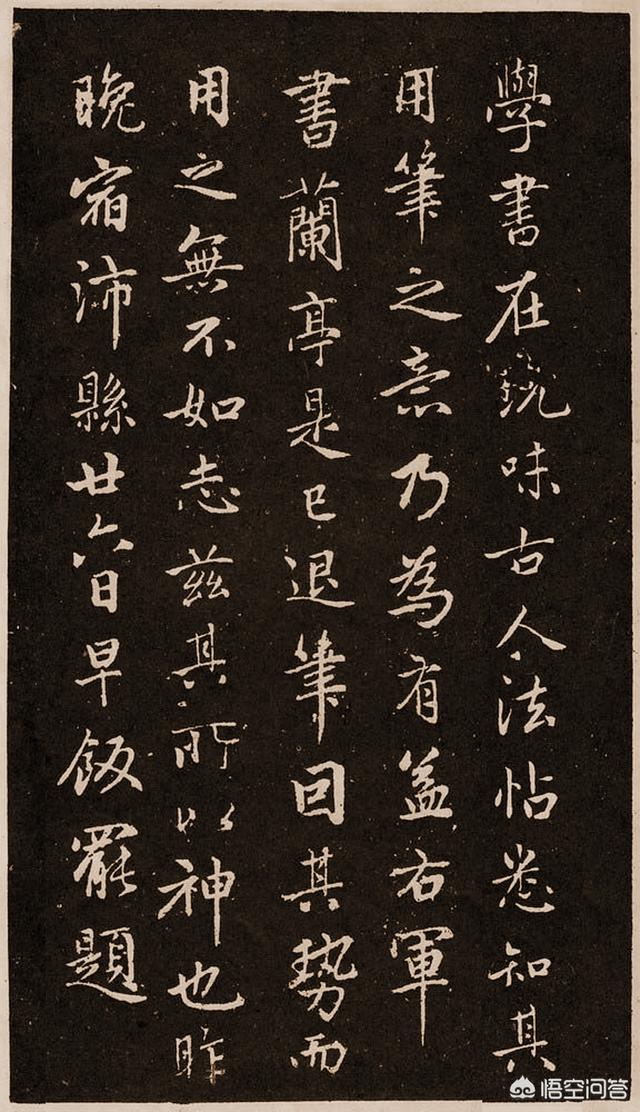 學書在玩味古人法帖悉知其
用筆之意乃為有益右軍
書蘭亭是已退筆回其勢而
用之無不如志茲其所以神也昨
晚宿沛縣廿六日早飯罷題
悟空问答